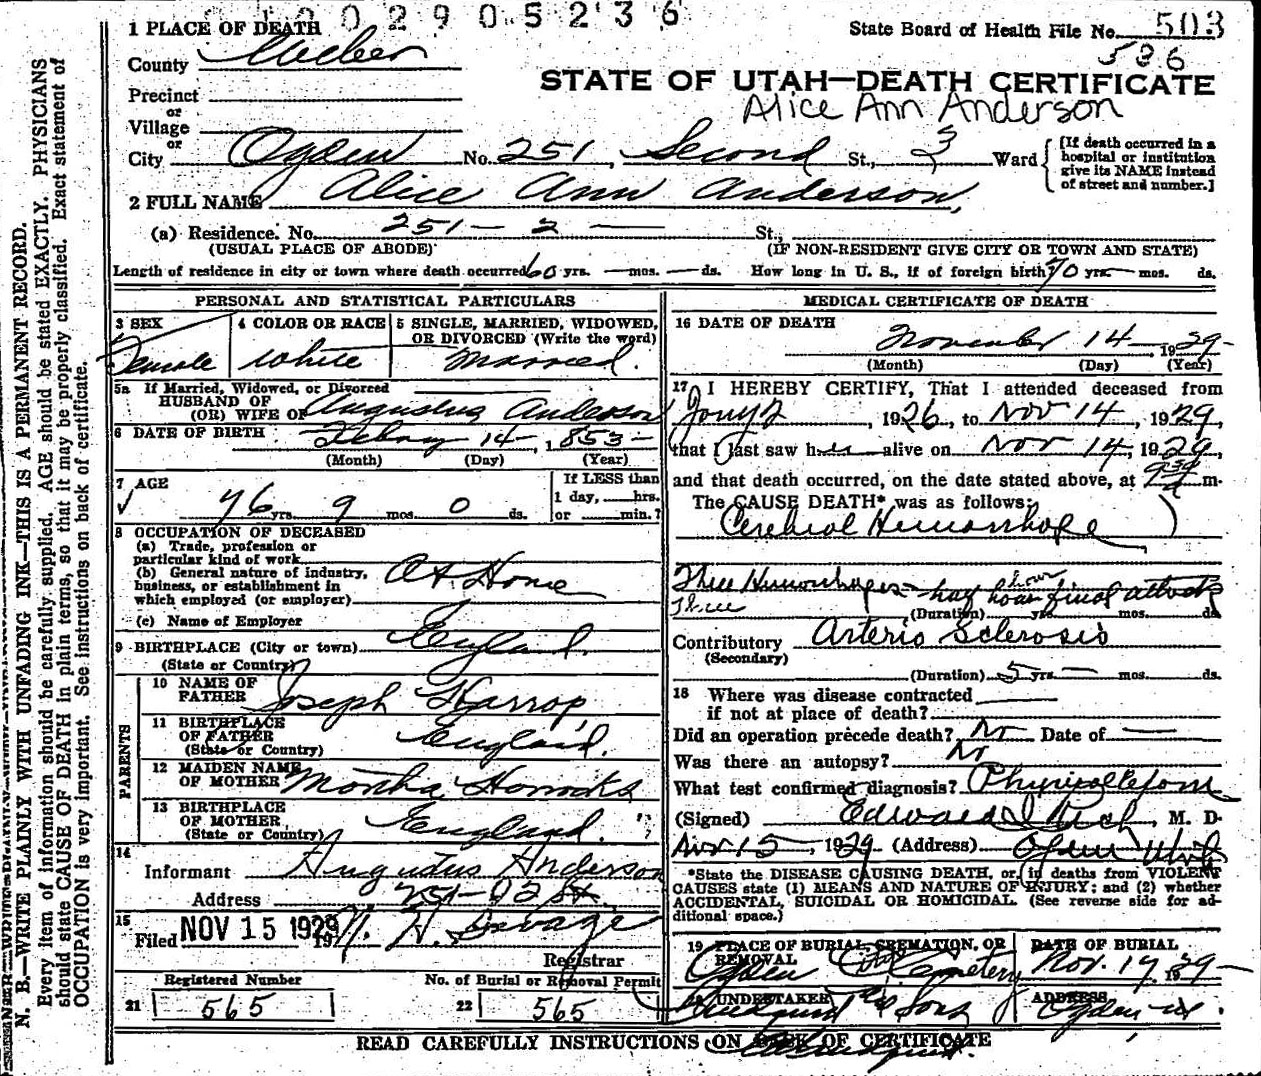 0 2 9 0 5 2 3 6
1 PLACE OF DEATH
State Board of Health File No. 503
County Weber
536
STATE OF UTAH—DEATH CERTIFICATE
Precinct
Alice Ann Anderson
or
Village
or
City Ogden No. 251, Second St., 3 Ward
[If death occurred in a
hospital or institution
give its NAME instead
of street and number.]
2 FULL NAME Alice Ann Anderson,
(a) Residence. No. 251 - 2 — St.,
(USUAL PLACE OF ABODE) (IF NON-RESIDENT GIVE CITY OR TOWN AND STATE)
Length of residence in city or town where death occurred 60 yrs. — mos. — ds. How long in U. S., if of foreign birth? 70 yrs. — mos. ds.
PERSONAL AND STATISTICAL PARTICULARS
3 SEX
Female
4 COLOR OR RACE
White
5 SINGLE, MARRIED, WIDOWED,
OR DIVORCED (Write the word)
Married.
5a If Married, Widowed, or Divorced
HUSBAND OF
(OR) WIFE OF Augustus Anderson
6 DATE OF BIRTH Febry 14 - , 1853 -
(Month) (Day) (Year)
7 AGE
76 yrs. 9 mos. 0 ds.
If LESS than
1 day, hrs.
or min.?
8 OCCUPATION OF DECEASED
(a) Trade, profession or
particular kind of work
(b) General nature of industry,
business, or establishment in
which employed (or employer)
At Home
(c) Name of Employer
9 BIRTHPLACE (City or town) England.
(State or Country)
PARENTS
10 NAME OF
FATHER Joseph Harrop,
11 BIRTHPLACE
OF FATHER England.
(State or Country)
12 MAIDEN NAME
OF MOTHER Martha Horrocks
13 BIRTHPLACE
OF MOTHER England.
(State or Country)
14
Informant Augustus Anderson
Address 251 - 02 St.
15
Filed NOV 15 1929 19 Savage
Registrar
Registered Number
21 565
No. of Burial or Removal Permit
22 565
MEDICAL CERTIFICATE OF DEATH
16 DATE OF DEATH
November 14 - 1929 -
(Month) (Day) (Year)
17 I HEREBY CERTIFY, That I attended deceased from
, 1926, to Nov 14, 1929,
that I last saw her alive on Nov 14, 1929,
and that death occurred, on the date stated above, at 9 30 a m.
The CAUSE DEATH* was as follows:
Cerebral Hemorrhage
Three Hemorrhages - half hour final attack
hour
Three
(Duration) yrs. mos. ds.
Contributory Arterio Sclerosis
(Secondary)
(Duration) 5 yrs. — mos. ds.
18 Where was disease contracted
if not at place of death?
Did an operation precede death? No Date of —
Was there an autopsy? No
What test confirmed diagnosis?
(Signed) Edward I Rich, M. D.
Nov 15, 1929 (Address) Ogden Utah
*State the DISEASE CAUSING DEATH, or, in deaths from VIOLENT
CAUSES state (1) MEANS AND NATURE OF INJURY; and (2) whether
ACCIDENTAL, SUICIDAL OR HOMICIDAL. (See reverse side for ad-
ditional space.)
19 PLACE OF BURIAL, CREMATION, OR
REMOVAL
Ogden City Cemetery
DATE OF BURIAL
Nov. 17 1929 -
20 UNDERTAKER
Lindquist & Sons
ADDRESS
Ogden - U.
READ CAREFULLY INSTRUCTIONS ON BACK OF CERTIFICATE
N. B.—WRITE PLAINLY WITH UNFADING INK—THIS IS A PERMANENT RECORD.
Every item of information should be carefully supplied. AGE should be stated EXACTLY. PHYSICIANS
should state CAUSE OF DEATH in plain terms, so that it may be properly classified. Exact statement of
OCCUPATION is very important. See instructions on back of certificate.